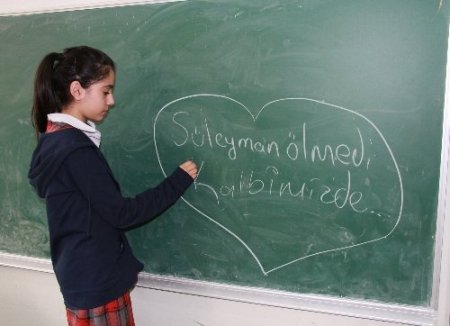 Süleyman ölmedi,
Kalbimizde...